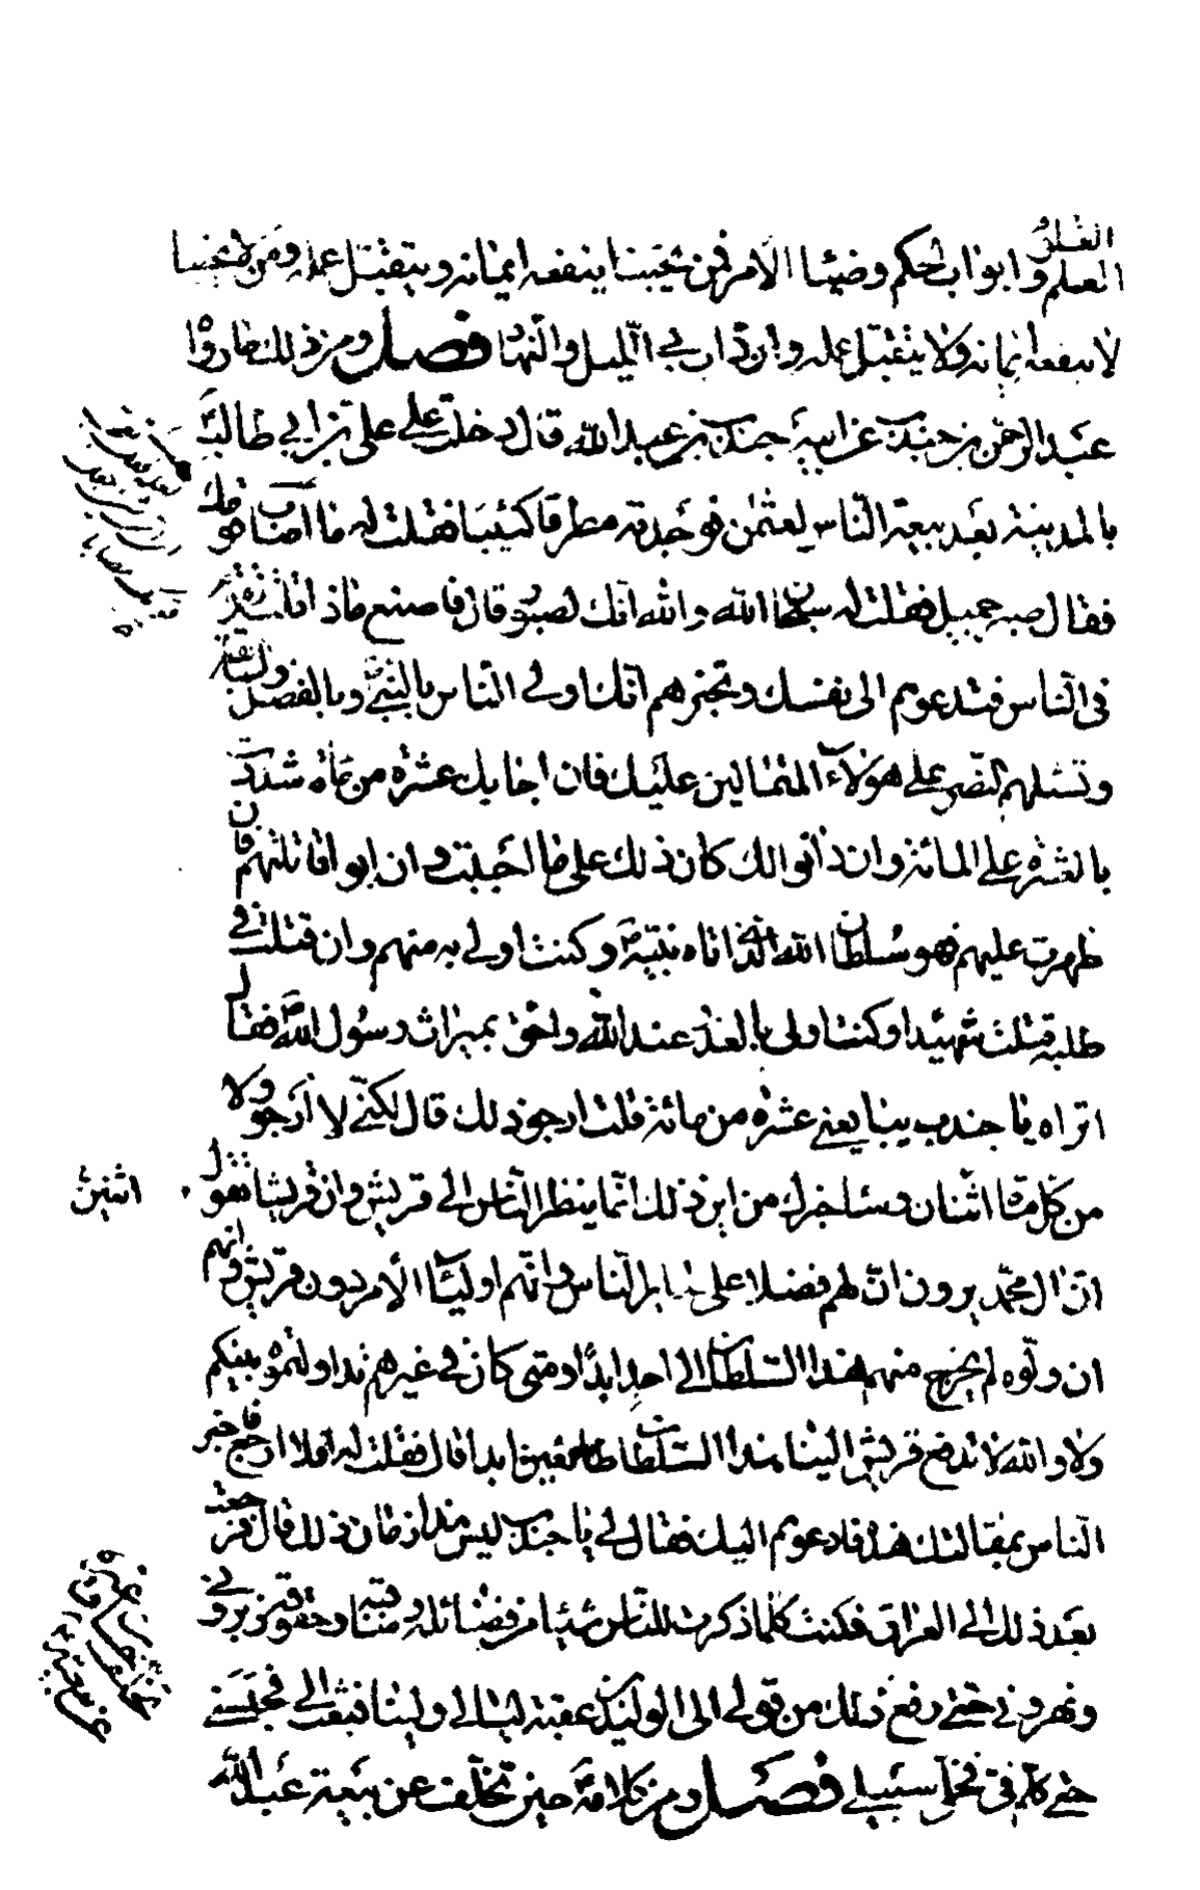 العلم وابواب الحكم وضياء الامر فمن يحبنا ينفعه ايمانه ويتقبل عمله ومن لا يحبنا
لا ينفعه ايمانه ولا يتقبل عمله وان داب في الليل والنهار فصل ومن ذلك ما رواه
عبد الرحمن بن جندب عن ابيه جندب بن عبد الله قال دخلت على علي بن ابي طالب
بالمدينة بعد بيعة الناس لعثمن فوجدته مطرقا كئيبا فقلت له ما اصاب قومك
فقال صبر جميل فقلت له سبحان الله والله انك لصبور قال فاصنع ماذا قلت تقوم
في الناس فتدعوهم الى نفسك وتخبرهم انك اولى الناس بالنبي وبالفضل والسابقة
وتسئلهم النصر على هؤلاء المتمالين عليك فان اجابك عشرة من مائة شددت
بالعشرة على المائة وان دانوا لك كان ذلك على ما احببت وان ابوا قاتلتهم فان
ظهرت عليهم فهو سلطان الله الذي اتاه نبيه وكنت اولى به منهم وان قتلت في
طلبه قتلت شهيدا وكنت اولى بالعذر عند الله واحق بميراث رسول الله فقال
اتراه يا جندب يبايعني عشرة من مائة قلت ارجو ذلك قال لكني لا ارجو ولا
من كل مائة اثنان وساخبرك من اين ذلك انما ينظر الناس الى قريش وان قريشا تقول
اثنين
ان ال محمد يرون ان لهم فضلا على سائر الناس وانهم اولياء الامر دون قريش وانهم
ان ولوه لم يخرج منهم هذا السلطان الى احد ابدا ومتى كان في غيرهم تداولتموه بينكم
ولا والله لا تدفع قريش الينا هذا السلطان طائعين ابدا قال فقلت له افلا ارجع فاخبر
الناس بمقالتك هذه فادعوهم اليك فقال لي يا جندب ليس هذا زمان ذلك قال فرجعت
بعد ذلك الى العراق فكنت كلما ذكرت للناس شيئا من فضائله ومناقبه وحقوقه زبروني
ونهروني حتى رفع ذلك من قولي الى الوليد بن عقبة ليالي ولينا فبعث الي فحبسني
حتى كلم في فخلى سبيلي فصل ومن كلامه حين تخلف عن بيعته عبد الله